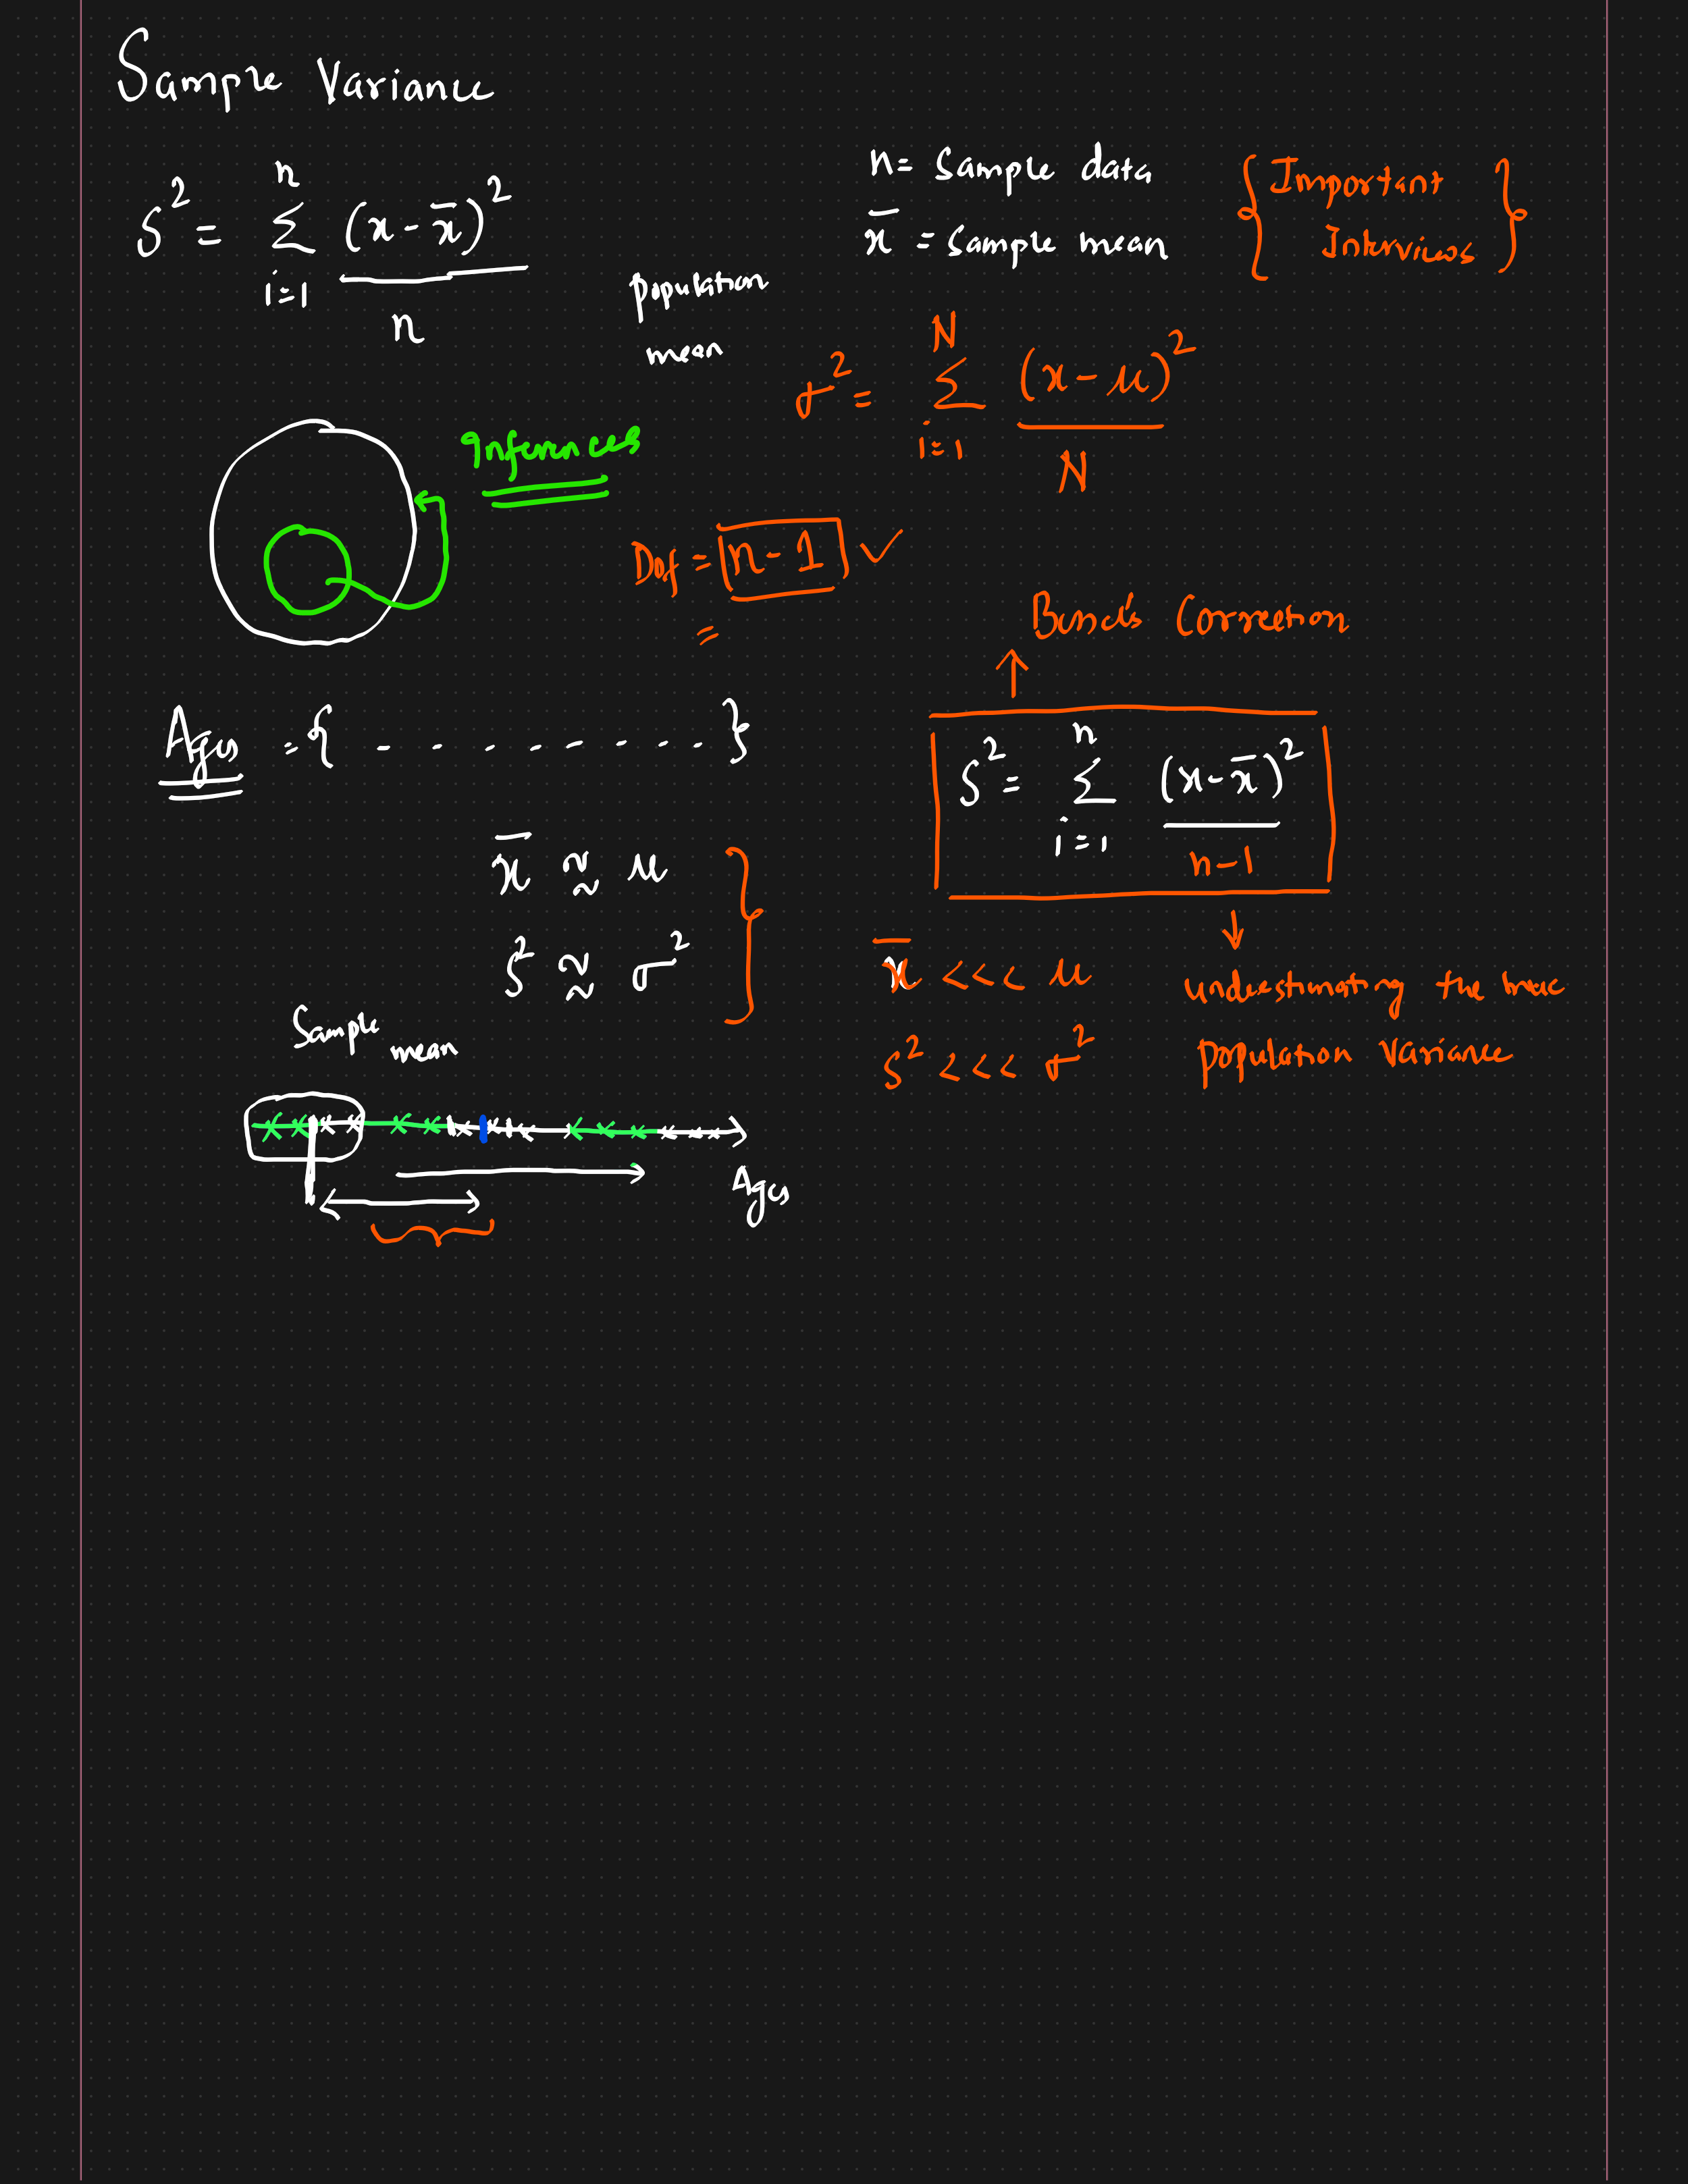 Sample Variance
s² = Σ_{i=1}^{n} (x - x̄)² / n
n = Sample data
x̄ = Sample mean
{ Important
Interviews }
population
mean
σ² = Σ_{i=1}^{N} (x - μ)² / N
Inferences
Dof = n - 1 ✓
=
Correction
Ages = { - - - - - - - - - }
s² = Σ_{i=1}^{n} (x - x̄)² / n - 1
x̄ ≈ μ
s² ≈ σ²
x̄ <<< μ
s² <<< σ²
the
population variance
Sample
mean
Ages